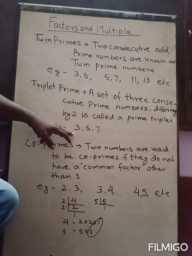 Factors and Multiple
Twin Primes → Two consecutive odd
Prime numbers are known as
Twin prime numbers
eg - 3, 5, 5, 7, 11, 13 etc
Triplet Prime → A set of three conse-
cutive Prime numbers, differing
by 2 is called a prime triplet
3, 5, 7
Co-primes → Two numbers are said
to be co-primes if they do not
have a common factor other
than 1
eg - 2, 3, 3, 4, 4, 5 etc
FILMIGO